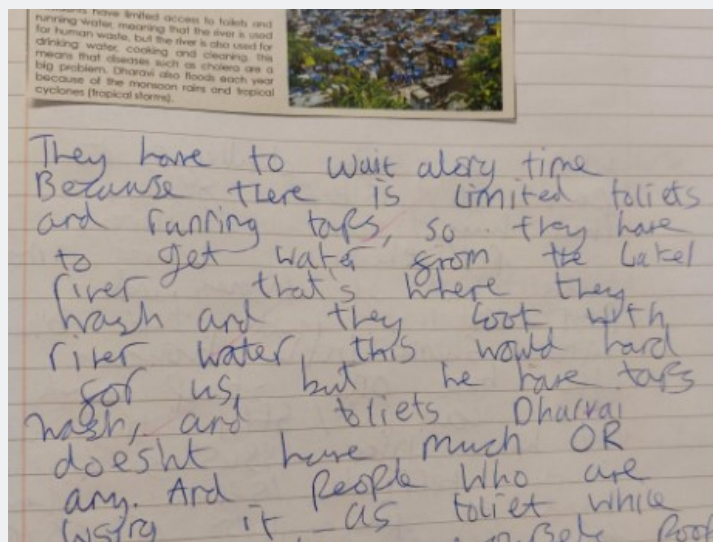 have limited access to toilets and
running water, meaning that the river is used
for human waste, but the river is also used for
drinking water, cooking and cleaning. This
means that diseases such as cholera are a
big problem. Dharavi also floods each year
because of the monsoon rains and tropical
cyclones (tropical storms).
They have to wait alory time
Because there is limited toliets
and running taps, so they have
to get water from the Lake/
river that's where they
wash and they cook with
river water, this would hard
for us, but he have taps
wash, and toliets Dharvai
doesht have much OR
any. And people who are
it as toliet while